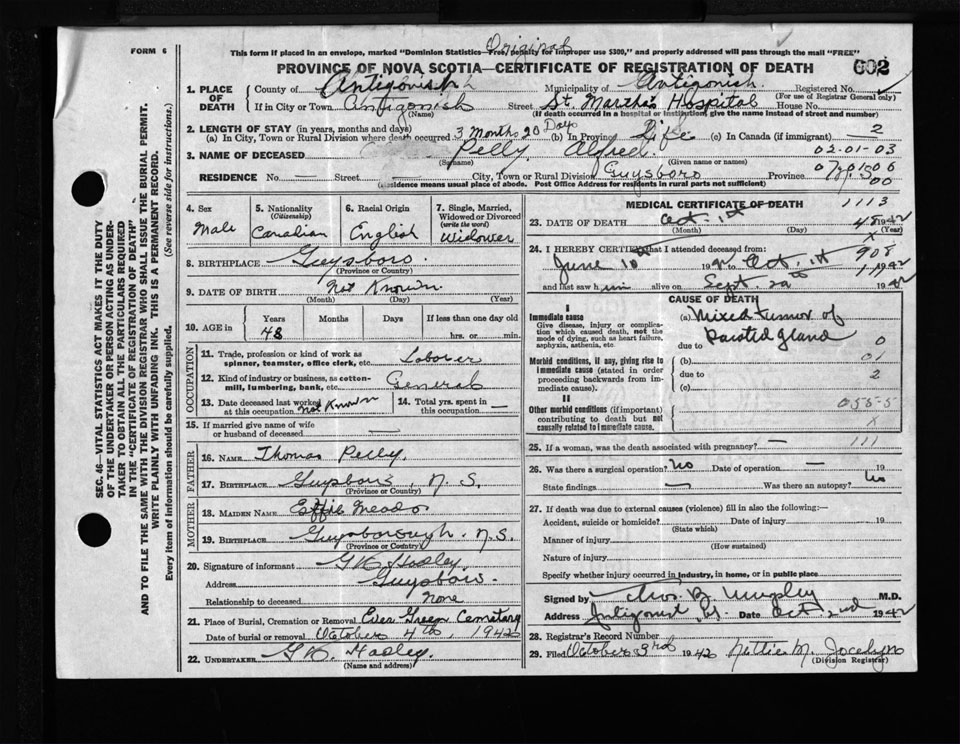 FORM 6
Original
This form if placed in an envelope, marked "Dominion Statistics—Free, penalty for improper use $300," and properly addressed will pass through the mail "FREE"
PROVINCE OF NOVA SCOTIA—CERTIFICATE OF REGISTRATION OF DEATH
602
1. PLACE OF DEATH
County of Antigonish Municipality of Antigonish Registered No.
(For use of Registrar General only)
If in City or Town Antigonish Street St. Martha's Hospital House No.
(Name) (If death occurred in a hospital or institution, give the name instead of street and number)
2. LENGTH OF STAY (in years, months and days)
(a) In City, Town or Rural Division where death occurred 3 Months 20 Days (b) In Province Life (c) In Canada (if immigrant) 2
3. NAME OF DECEASED Pelly Alfred. 02-01-03
(Surname) (Given name or names)
RESIDENCE No. — Street City, Town or Rural Division Guysboro Province
(Residence means usual place of abode. Post Office Address for residents in rural parts not sufficient)
4. Sex
Male
5. Nationality
(Citizenship)
Canadian
6. Racial Origin
English
7. Single, Married, Widowed or Divorced
(write the word)
Widower
8. BIRTHPLACE Guysboro.
(Province or Country)
9. DATE OF BIRTH Not Known
(Month) (Day) (Year)
10. AGE in
Years Months Days If less than one day old
48 hrs. or min.
OCCUPATION
11. Trade, profession or kind of work as spinner, teamster, office clerk, etc. Laborer
12. Kind of industry or business, as cotton-mill, lumbering, bank, etc. General
13. Date deceased last worked at this occupation Not Known
14. Total yrs. spent in this occupation —
15. If married give name of wife or husband of deceased —
FATHER
16. NAME Thomas Pelly.
17. BIRTHPLACE Guysboro, N. S.
(Province or Country)
MOTHER
18. MAIDEN NAME Effie Meado
19. BIRTHPLACE Guysborough. N.S.
(Province or Country)
20. Signature of informant
Address Guysboro.
Relationship to deceased None
21. Place of Burial, Cremation or Removal Ever Green Cemetary
Date of burial or removal October 4th, 1942
22. UNDERTAKER
(Name and address)
MEDICAL CERTIFICATE OF DEATH
1113
23. DATE OF DEATH Oct. 1st 1942
(Month) (Day) (Year)
24. I HEREBY CERTIFY that I attended deceased from:
June 10th 1942 to Oct. 1st 1942
and last saw him alive on Sept. 1942
CAUSE OF DEATH
I
Immediate cause
Give disease, injury or complication which caused death, not the mode of dying, such as heart failure, asphyxia, asthenia, etc.
(a) Mixed Tumor of Parotid Gland
due to
Morbid conditions, if any, giving rise to immediate cause (stated in order proceeding backwards from immediate cause).
(b)
due to
(c)
II
Other morbid conditions (if important) contributing to death but not causally related to immediate cause.
055-5
25. If a woman, was the death associated with pregnancy? — 111
26. Was there a surgical operation? No Date of operation — 19
State findings — Was there an autopsy? No
27. If death was due to external causes (violence) fill in also the following:—
Accident, suicide or homicide? Date of injury 19
(State which)
Manner of injury
(How sustained)
Nature of injury
Specify whether injury occurred in industry, in home, or in public place
Signed by Thos. B. Murphy M.D.
Address Antigonish, N.S. Date Oct 2nd 1942
28. Registrar's Record Number
29. Filed October 3rd 1942 Nettie M. Jocelyn
(Division Registrar)
SEC. 46—VITAL STATISTICS ACT MAKES IT THE DUTY
OF THE UNDERTAKER OR PERSON ACTING AS UNDERTAKER TO OBTAIN ALL THE PARTICULARS REQUIRED
IN THE "CERTIFICATE OF REGISTRATION OF DEATH"
AND TO FILE THE SAME WITH THE DIVISION REGISTRAR WHO SHALL ISSUE THE BURIAL PERMIT.
WRITE PLAINLY WITH UNFADING INK. THIS IS A PERMANENT RECORD.
Every item of Information should be carefully supplied. (See reverse side for instructions.)